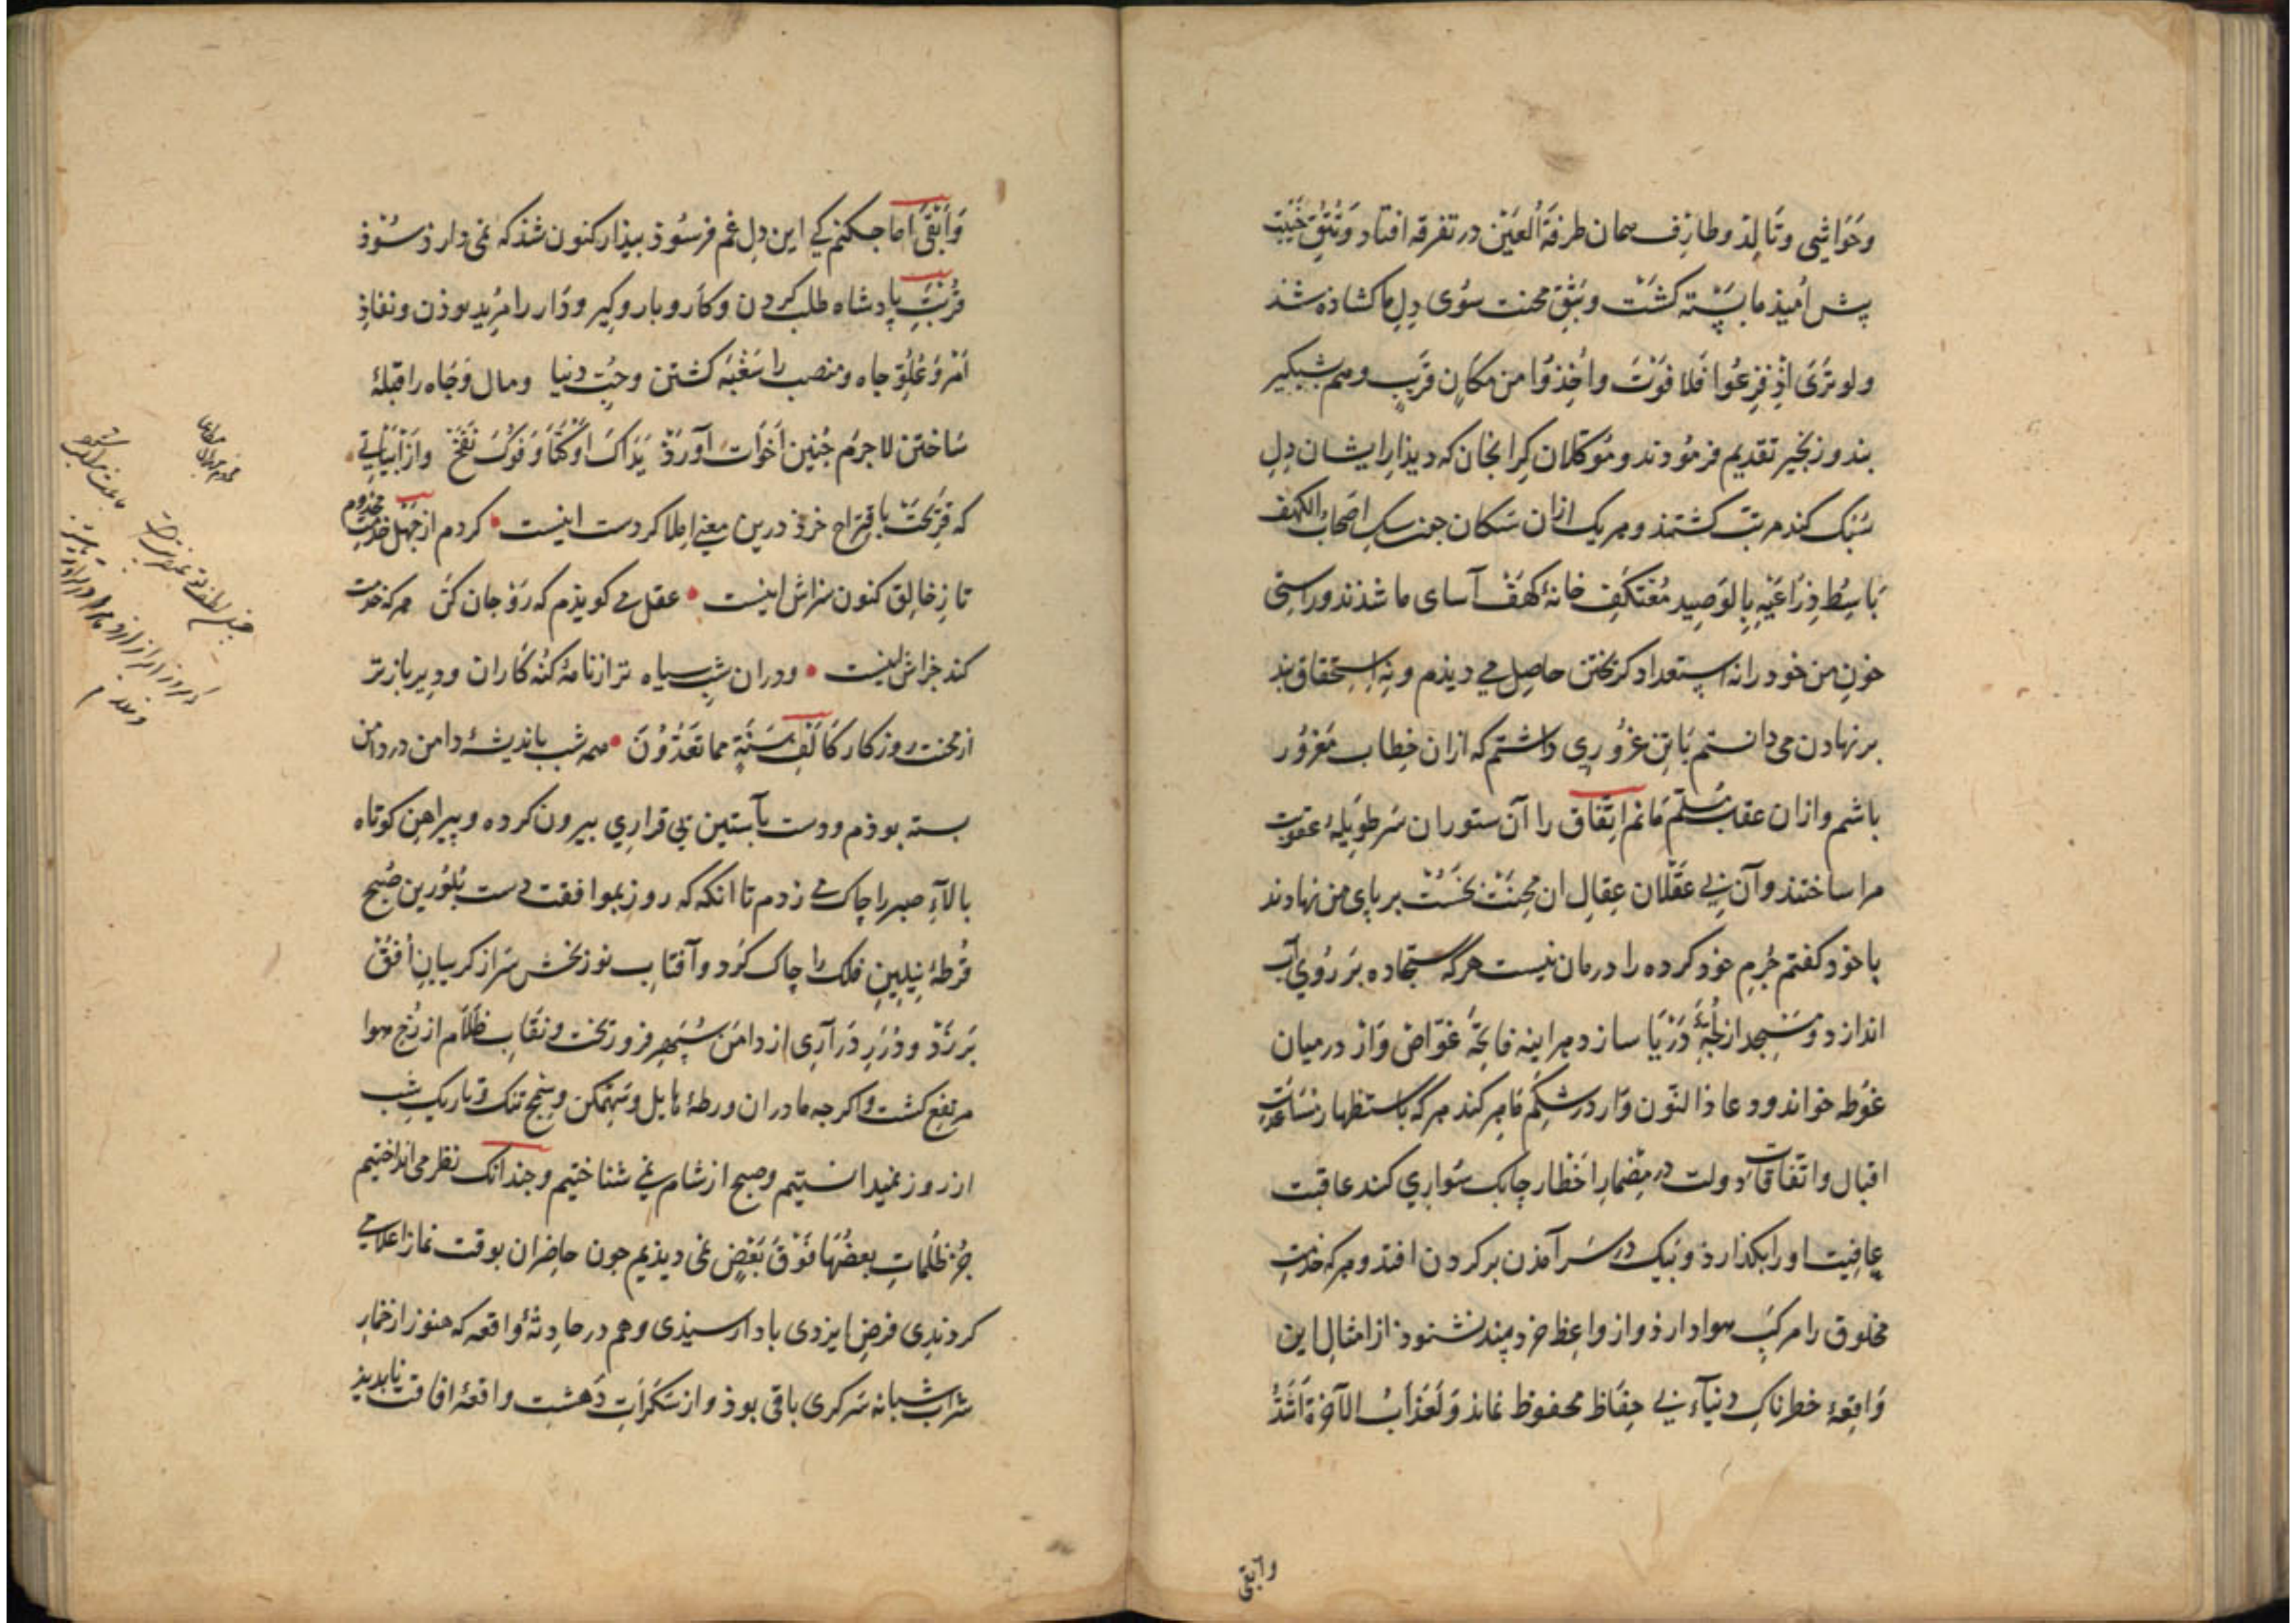 وَحَوَاشِی وتَالِدْ وطارِف همان طرفَةَ الْعَیْن در تفرقه افتاد وَ
پیش اُمیذِ ما بسته کشت وبَثْقِ محنت سُوی دِلِ ما کشاذه شذ
ولو تَرَی اذْ فزِعُوا فَلَا فَوْتَ واُخِذُوا من مکانٍ قریبٍ وهم شبکیر
بند وزنجیر تقدیم فرمُودند ومُوکّلان کِرانجان که دیذارِ ایشان دِل
سَنک کند مرتب کشتند وهریک ازان سَکان جون سکِ اصحابُ الکهف
بَاسِطٌ ذِرَاعَیْهِ بِالوَصِید مُعْتکَفِ خانهٔ کهَفْ آسای ما شذند وراستی
خونِ من خود را نه استعداد کریختن حاصِل می دیذم ونه استحقاق بند
برنهادن می دانستم بَاین غرُوری داشتم که ازان خِطاب مَغرُور
باشم وازان عقاب مسَلّم مَانم اتِّفاق را آن ستوران سَر طَوِیلهٔ عقوبت
مرا ساختند وآن بی عَقْلان عِقالِ ان مِحنَتْ نخسْت بر پای من نهادند
با خوْد کفتم جُرمِ خوْد کرده را درمان نیست هرکه سجّاده بَر رُوی آب
اندازد ومَسْجد از لُجَّهٔ دَرْیَا سازد هراینه فاتحَهٔ غوّاصْ وَاز درمیان
غوْطه خواند ودعا ذا النّون وَار در شکم ماهی کند هرکه باستظهار مساعدتِ
اقبال واتفاقاتِ دولت در مِضْمارِ اخْطار چابک سُواری کند عاقبت
عافیت او را بکذارذ ونیک در سَر آمذن بر کردن افتذ وهر که خدمتِ
مخلوق را مرکبِ هوا دارذ واز واعِظ خرد پند نشنوذ از امثالِ این
وَاقِعهٔ خطرناکِ دنیآء بی حِفَاظ محفوظ نماند وَلَعَذَابُ الآخرَة اَشَدُّ
وابقی
وَاَبْقَیَ اما جکنم کی این دِل غم فرسُوذ بیذار کنون شذ که نمی دارذ سُوْذ
قُرْبَتِ پادشاه طلب کردن وکار وبار وکیر ودَار را مُرید بوذن ونفاذِ
اَمْر وَعُلُوّ جاه ومنصب را سَغْبَه کشتن وحُبّ دنیا ومال وَجَاه را قبلهٔ
سَاختن لاجرَم جُنین اَخَوات آورَدْ یَدَاکَ اَوْکَتَا وَفُوکَ نَفَخَ وازْ ابیاتی
که قریحَت باقتراح خرذ درین معنی املا کردست اینست • کردم از جَهْل خدمتِ مخدوم
تا زِ خالِق کنون سزاش اینست • عقل می کویذم که رَوْ جان کَن هر که خدمت
کند جزاش اینست • ودران شبِ سیاه تر از نامهٔ کنْه کاران ودیر بازتر
از محنت روزکار کَاَلْفِ سَنَةٍ مما تَعُدّوُنَ • همه شب باندیشهٔ دامن در دامن
بسته بوذم ودست بآستین بی قراری بیرون کرده وپیراهن کوتاه
بالآءِ صبر را چاک می زدم تا انکه که روز بموافقت دست بُلوُرین صُبح
قُرطهٔ نیلینِ فلک را چاک کرد وآفتاب نوربخش سَر از کریبانِ اُفقْ
بَر زَدْ ودُرَرِ دَرَارِی از دامن سپهر فرو ریخت ونقابِ ظَلَام از رُخ هوا
مرتفع کشت واکرجه ما دران ورطهٔ هایل وسَهمکن وسِجْنِ تنک وتاریک شب
از روز نمیدانستیم وصبح از شام نمی شناختیم وجندانک نظر می انداختیم
جُز ظُلُماتِ بعضُهَا فَوْقَ بَعْضٍ نمی دیذیم جون حاضِران بوقت نماز اعلامی
کردندی فرضِ ایزدی بادا رسیذی وهم در حادِثهٔ واقعه که هنوز از خمار
شرابِ شبانه سَرکری باقی بوذ واز سَکَراتِ دَهشت واقعهٔ افاقت نابدید